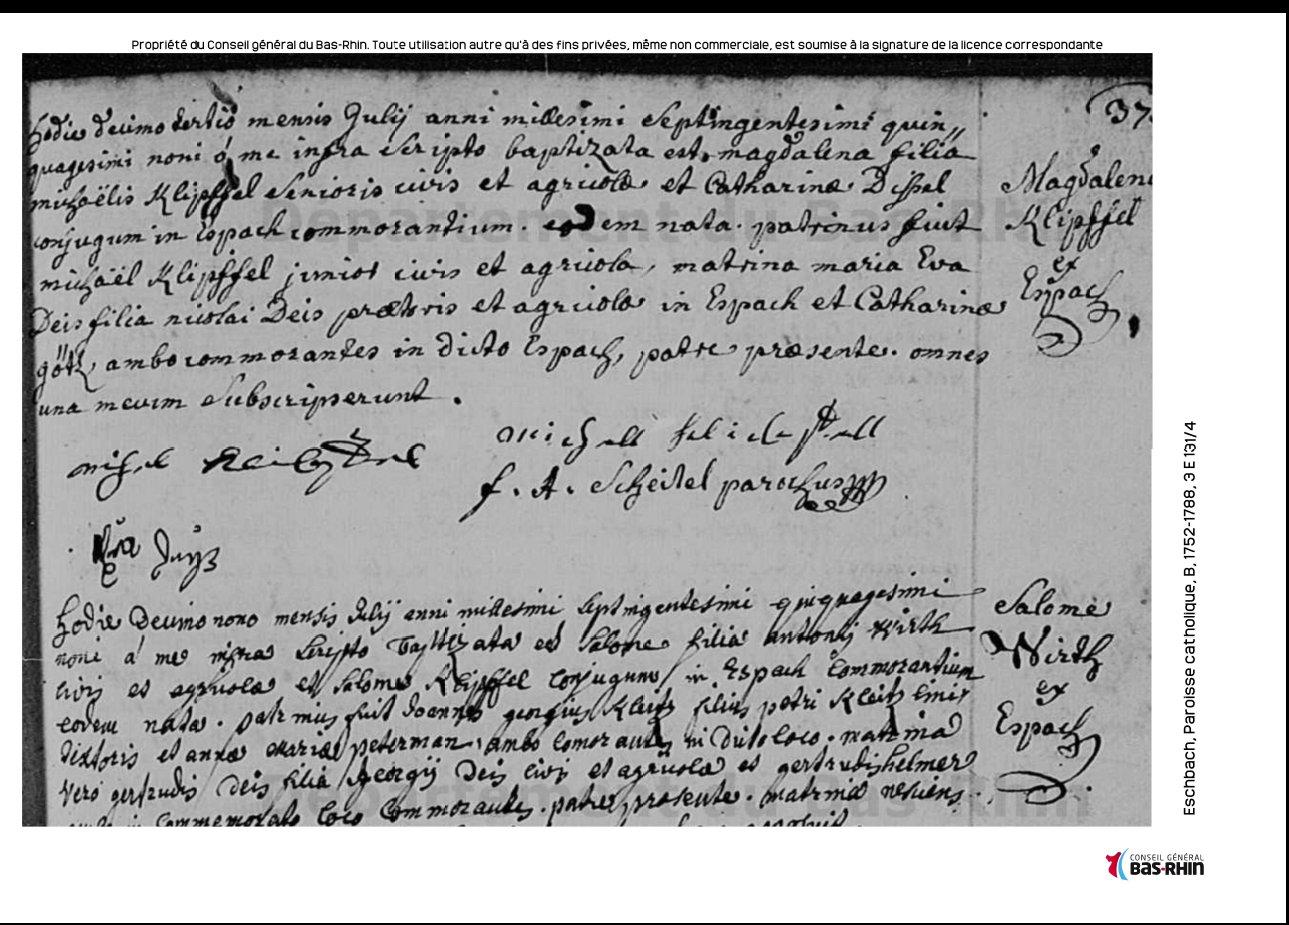 Propriété du Conseil général du Bas-Rhin. Toute utilisation autre qu'à des fins privées, même non commerciale, est soumise à la signature de la licence correspondante
37
hodie decimo tertio mensis Julij anni millesimi septingentesimi quin,,
quagesimi noni á me infra scripto baptizata est magdalena filia
michaëlis Klipffel senioris civis et agricolæ et Catharinæ Dissel
conjugum in Espach commorantium. eodem nata. patrinus fuit
michaël Klipffel junior civis et agricola, matrina maria Eva
Deis filia nicolai Deis prætoris et agricolæ in Espach et Catharinæ
götz, ambo commorantes in dicto Espach, patre præsente. omnes
una mecum subscripserunt.
Magdalena
Klipffel
ex
Espach
f. A. Scheidel parochus
Hodie Decimo nono mensis Julij anni millesimi septingentesimi quiquagesimi
noni á me infra scripto baptizata est Salome filia antonij Wirth
civis et agricolæ et Salome Klipffel conjugum in Espach commorantium
eodem nata. patrinus fuit Joannes georgius Kleitz filius petri Kleitz civis
textoris et annæ mariæ peterman, ambo comorantes in dicto loco. matrina
vero gertrudis Deis filia Georgij Deis civis et agricolæ et gertrudis helmer
in commemorato loco commorantes. patre præsente. matrina nesciens
Salome
Wirth
ex
Espach
Departement du Bas-Rhin
Departement du Bas-Rhin
Eschbach, Paroisse catholique, B, 1752-1788, 3 E 131/4
CONSEIL GÉNÉRAL
BAS-RHIN